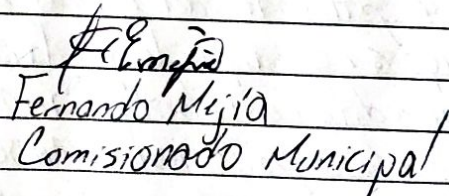 Fernando Mejía
Comisionado Municipal